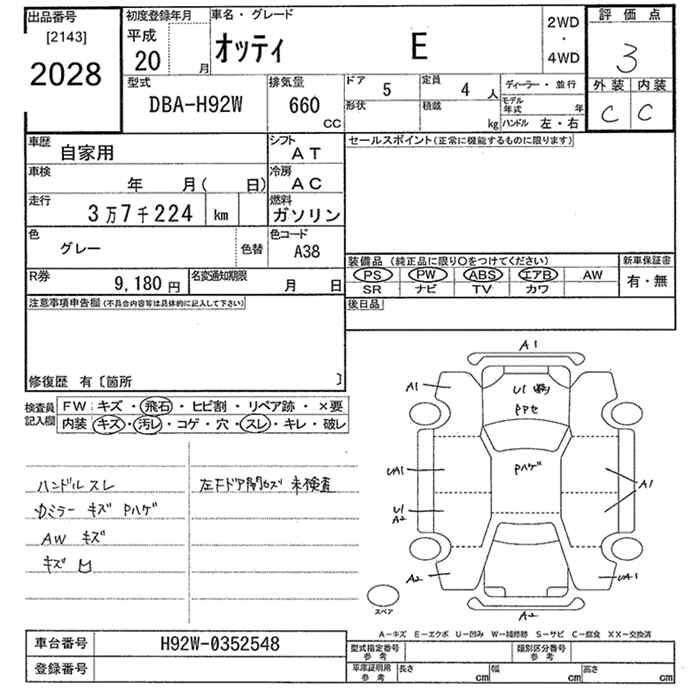 出品番号
[2143]
2028
初度登録年月
平成
20 月
車名・グレード
オッティ E
2WD
・
4WD
評価点
3
型式
DBA-H92W
排気量
660
CC
ドア 5
定員 4 人
形状
積載 kg
ディーラー・並行
モデル年式 年
ハンドル 左・右
外装 内装
C C
車歴 自家用
シフト AT
車検 年 月( 日)
冷房 AC
走行 3万7千224 km
燃料 ガソリン
色 グレー 色替
色コード A38
R券 9,180円
名変通知期限 月 日
セールスポイント(正常に機能するものに限ります)
装備品(純正品に限り○をつけてください)
PS PW ABS エアB AW
SR ナビ TV カワ
新車保証書
有・無
後日品
注意事項申告欄(不具合内容等は具体的に記入して下さい)
修復歴 有〔箇所 〕
検査員記入欄
FW:キズ・飛石・ヒビ割・リペア跡・×要
内装 キズ・汚レ・コゲ・穴・スレ・キレ・破レ
ハンドルスレ
カミラー キズ Pハゲ
AW キズ
キズ
左Fドア開カズ 未検査
A1
A1
U1
Pアセ
UA1
Pハゲ
A1
U1
A2
A2
UA1
A2
スペア
A-キズ E-エクボ U-凹み W-補修跡 S-サビ C-腐食 XX-交換済
車台番号 H92W-0352548
登録番号
型式指定番号参考
類別区分番号参考
車庫証明用参考
長さ cm
幅 cm
高さ cm